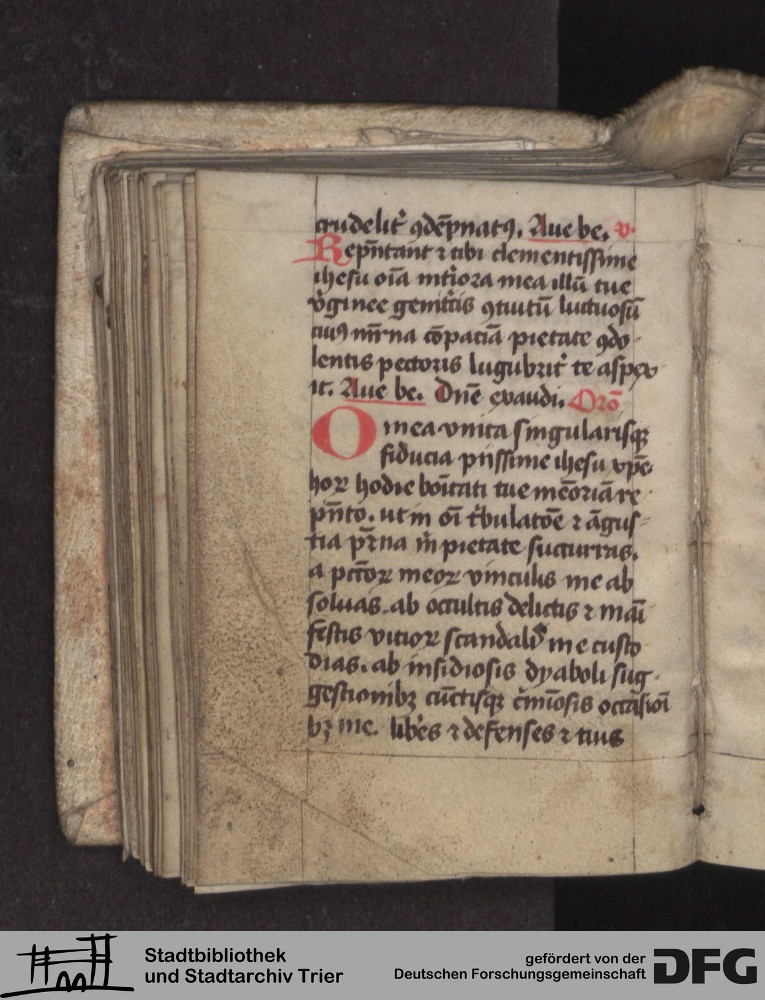 crudelit᷑ ꝯdēpnatꝰ. Aue be. v.
Rep̄ntant ⁊ tibi clementissime
ihesu oīa int̄iora mea illū tue
v̾ginee genit̾cis luctuosū
cōpaciā pietate ꝯdo
lentis pectoris lugubrit᷑ te aspex
it. Aue be. Dn̄e exaudi. Oro᷑
O mea vnica singularisqꝫ
fiducia piissime ihesu xp̄e
hoꝝ hodie bōitati tue mēoriā re
p̄nto. ut in oī t̾bulatōe ⁊ āgus
tia pietate succurras.
a pctōꝝ meoꝝ vinculis me ab
soluas. ab occultis delictis ⁊ māi
festis vitioꝝ scandalis me custo
dias. ab insidiosis dyaboli sug-
gestionibꝫ cūctisqꝫ c̾mīosis occāsioī
bꝫ me. lib̾es ⁊ defenses ⁊ tuis
Stadtbibliothek
und Stadtarchiv Trier
gefördert von der
Deutschen Forschungsgemeinschaft
DFG